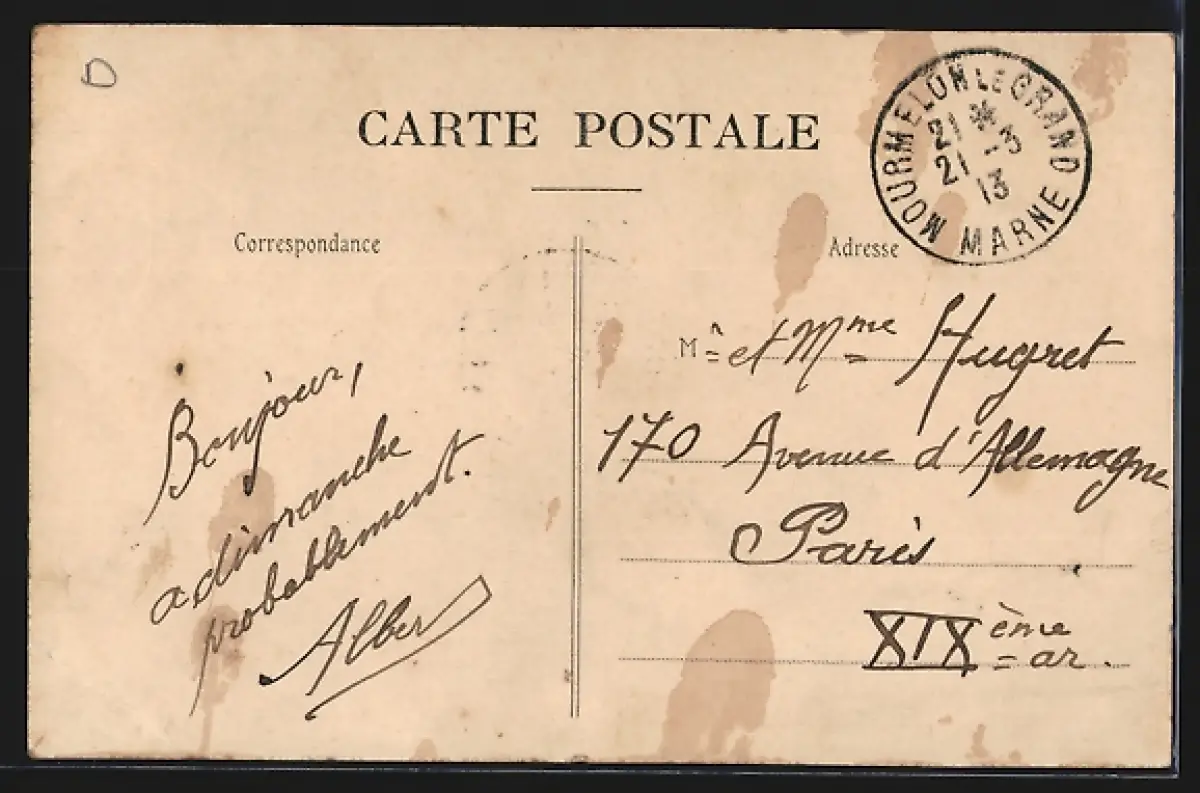 D
CARTE POSTALE
MOURMELON LE GRAND
21 *
21 -3
13
MARNE
Correspondance
Adresse
Bonjour,
a dimanche
probablement.
Albert
M^r et Mme Hugret
170 Avenue d'Allemagne
Paris
XIX ème ar.